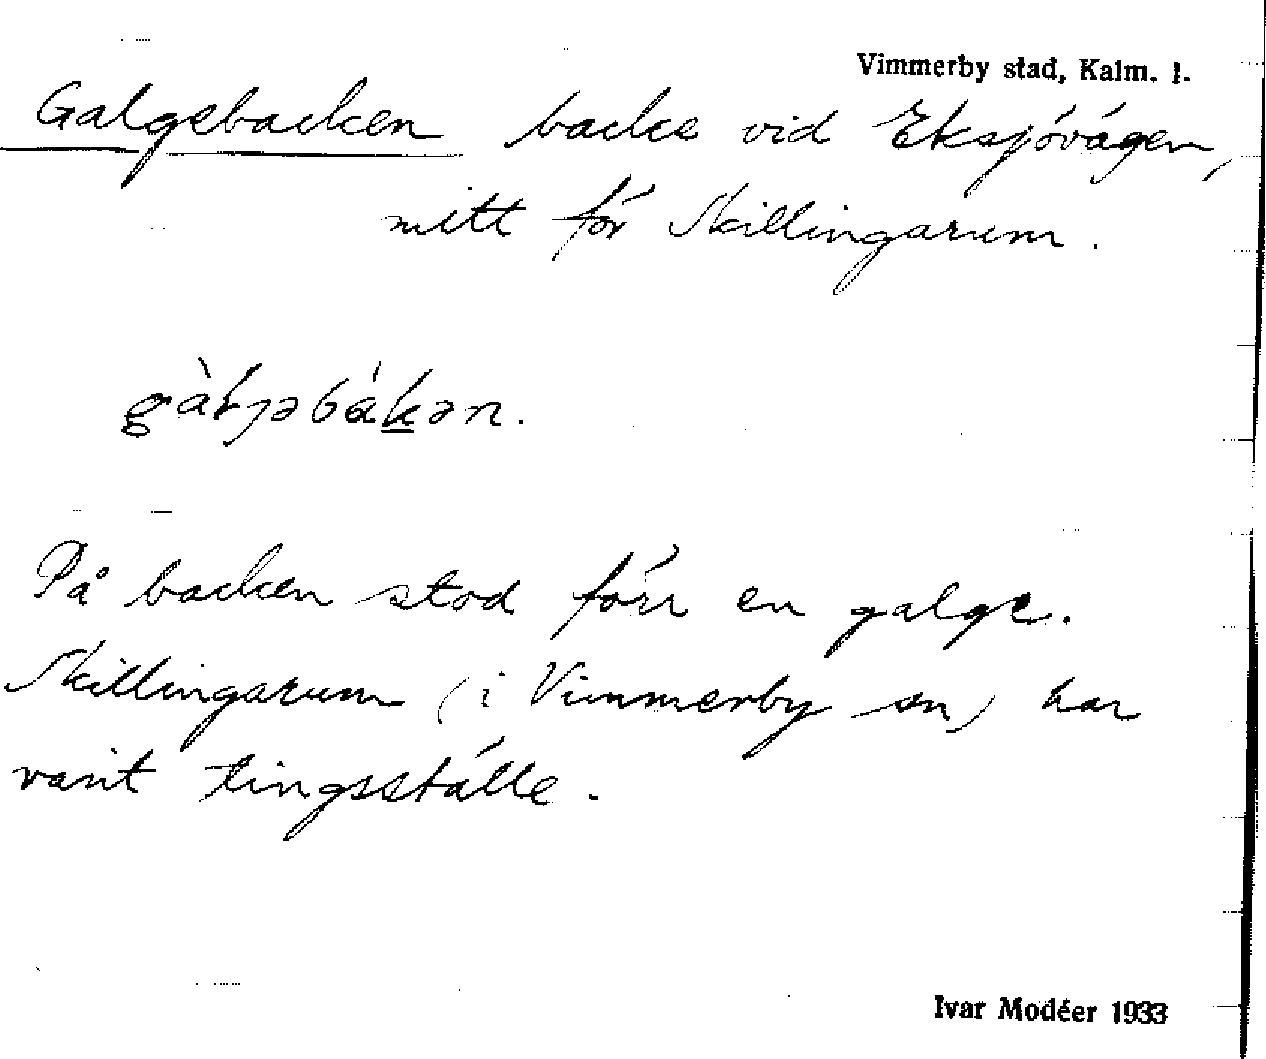 Vimmerby stad, Kalm. l.
Galgebacken backe vid Eksjövägen,
mitt för Skillingarum.
På backen stod förr en galge.
Skillingarum (i Vimmerby sn) har
varit tingsställe.
Ivar Modéer 1933